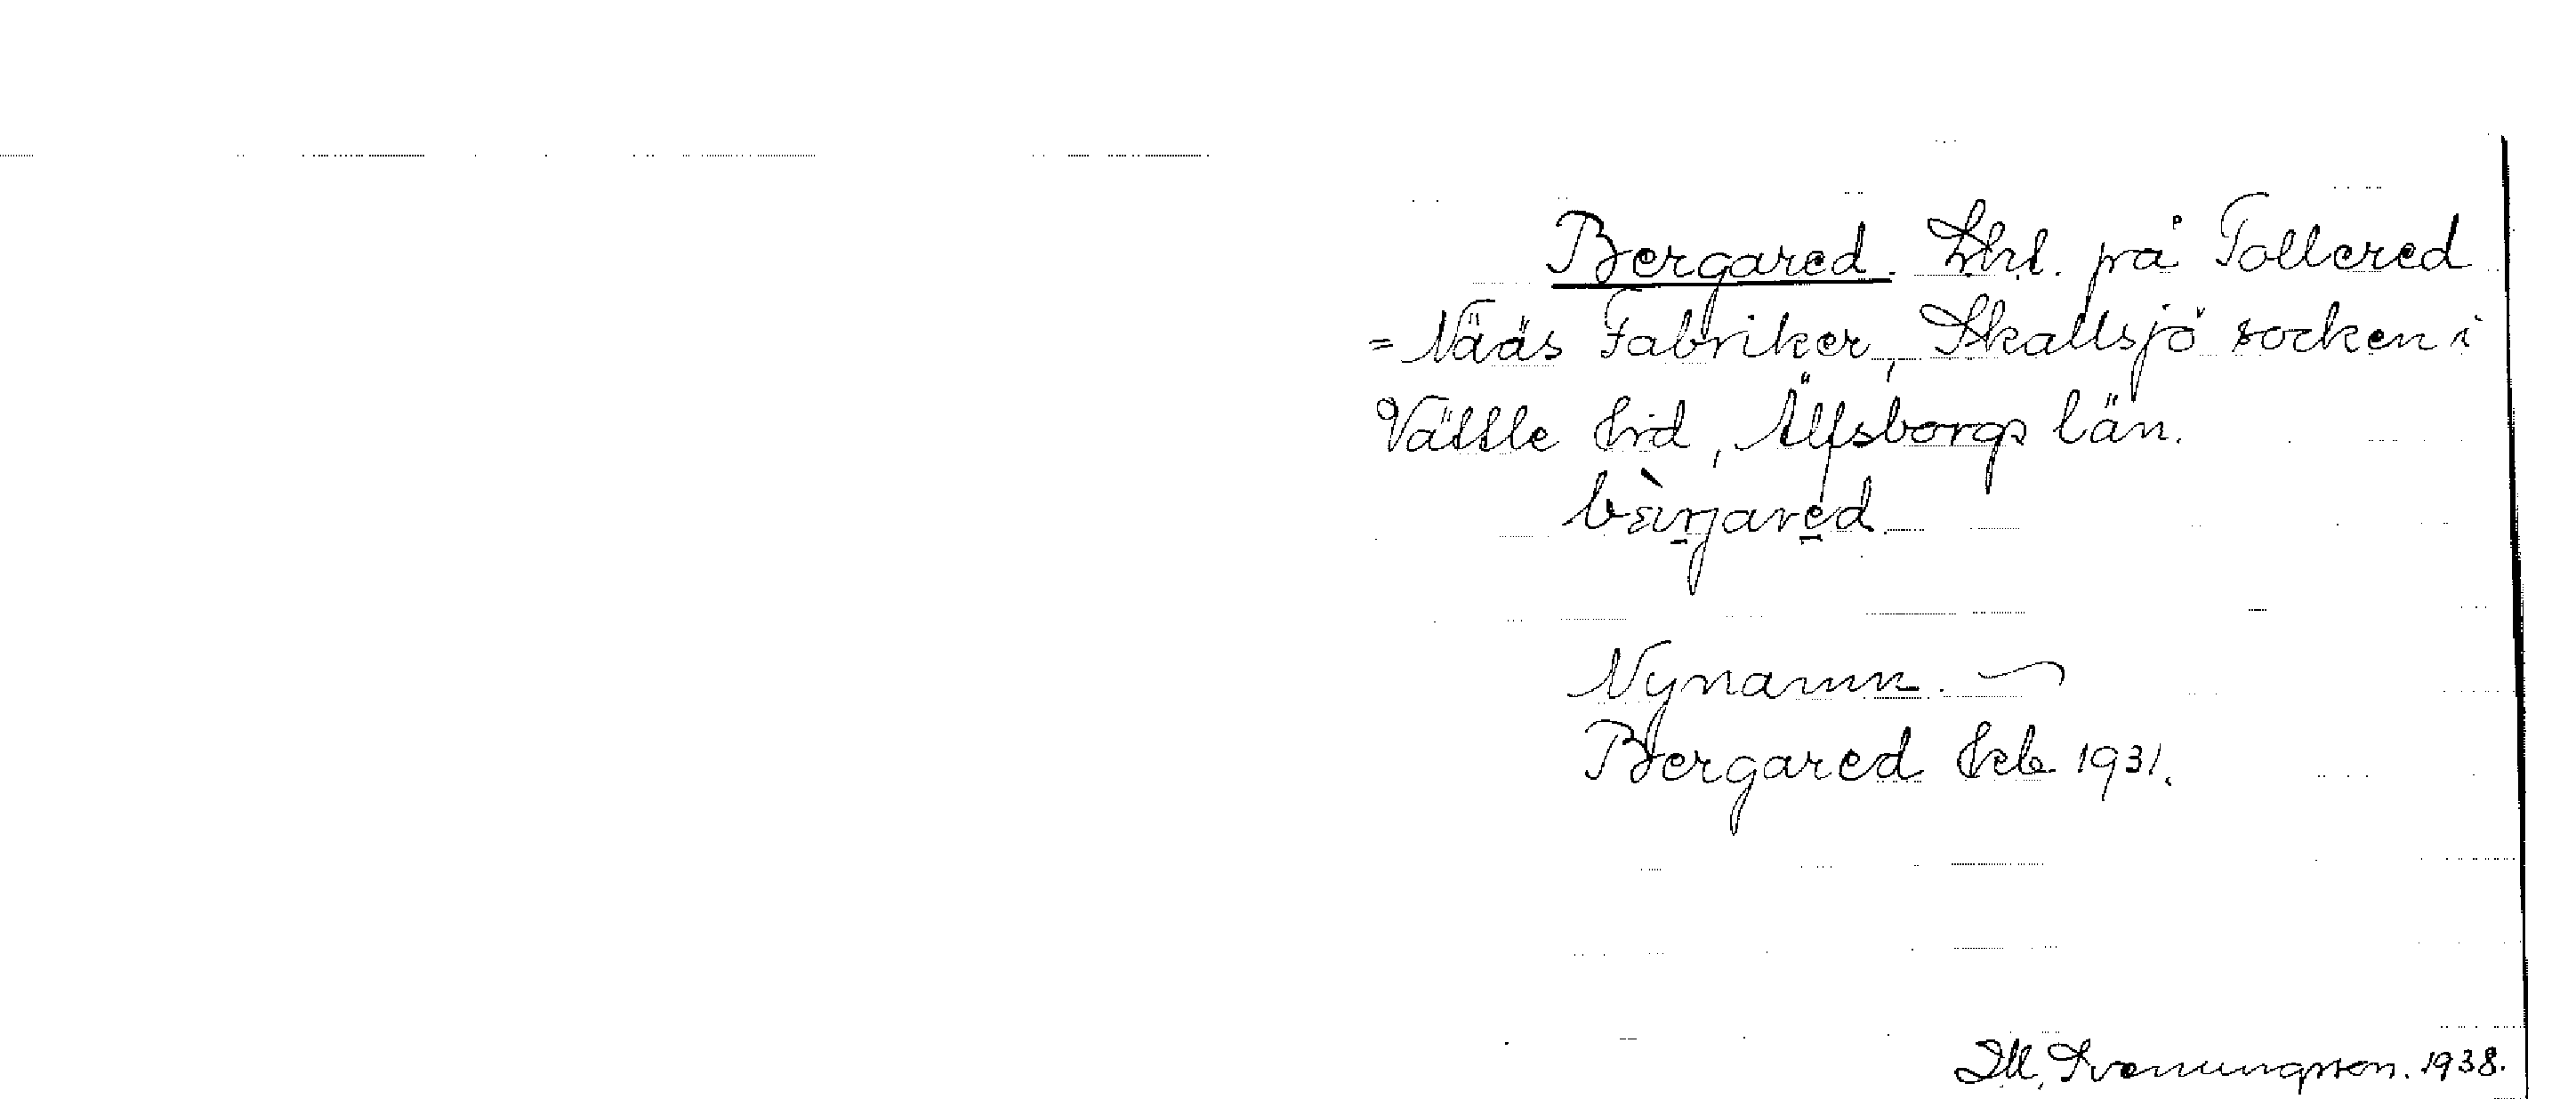 Bergared. Lht. på Tollered
= Nääs Fabriker, Skallsjö socken i
Vättle hrd, Älfsborgs län.
Nynamn.
Bergared Heb 1931.
Svenungsson. 1938.